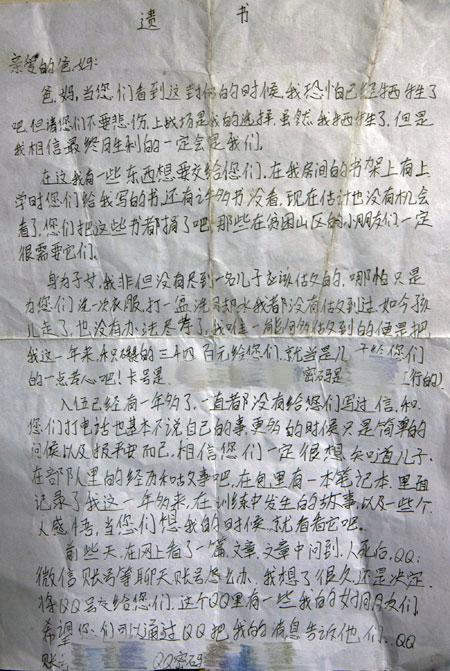 遗 书
亲爱的爸.妈:
爸.妈,当您们看到这封信的时候,我恐怕已经牺牲了
吧.但请您们不要悲伤,上战场是我的选择.虽然我牺牲了,但是
我相信最终胜利的一定会是我们.
在这我有一些东西想要交给您们,在我房间的书架上有上
学时您们给我写的书,还有许多书没看,现在估计也没有机会
看了,您们把这些书都捐了吧,那些在贫困山区的小朋友们一定
很需要它们.
身为子女,我非但没有尽到一名儿子应该做的,哪怕只是
为您们洗一次衣服,打一盆洗脚水我都没有做到过.如今孩
儿走了,也没有办法尽孝了,我唯一能够做到的便是把
我这一年来,积攒的三千四百元给您们,就当是儿子给您们
的一点苦心吧!卡号是 密码是 (行的)
入伍已经有一年多了,一直都没有给您们写过信,和
您们打电话也基本不说自己的事,更多的时候只是简单的
问候以及报平安而已,相信您们一定很想知道儿子,
在部队里的经历和故事吧,在包里有一本笔记本,里面
记录了我这一年多来,在训练中发生的故事,以及一些个
人感悟,当您们想我的时候,就看看它吧.
前些天,在网上看了一篇文章,文章中问到,人死后,QQ:
微信账号等聊天账号怎么办,我想了很久,还是决定,
将QQ号交给您们,这个QQ里有一些我的好朋友们
希望您们可以通过QQ把我的消息告诉他们.QQ
账号: QQ密码